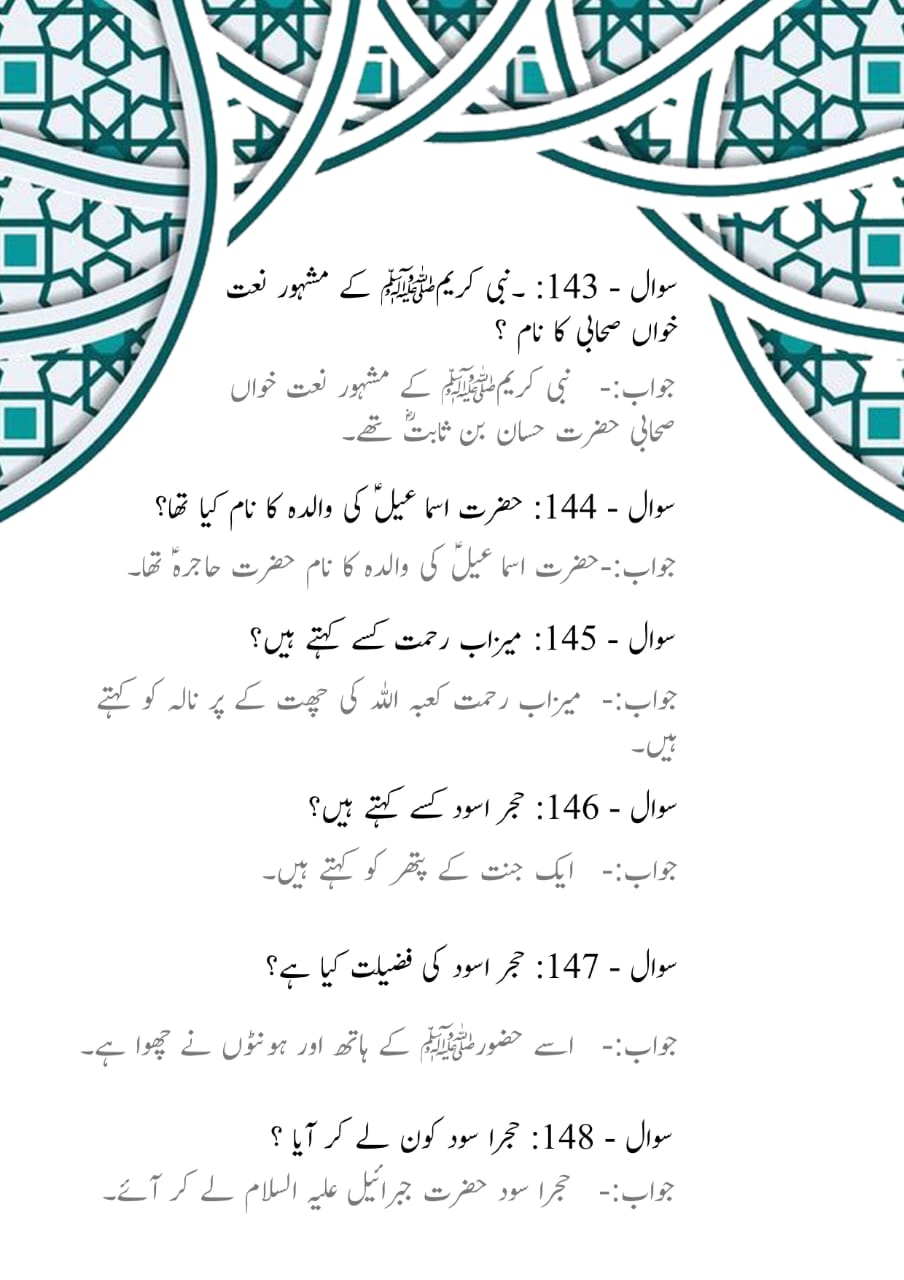 سوال - 143: ۔نبی کریمﷺ کے مشہور نعت
خواں صحابی کا نام ؟
جواب:- نبی کریمﷺ کے مشہور نعت خواں
صحابی حضرت حسان بن ثابتؓ تھے۔
سوال - 144: حضرت اسما عیلؑ کی والدہ کا نام کیا تھا؟
جواب:-حضرت اسما عیلؑ کی والدہ کا نام حضرت حاجرہؑ تھا۔
سوال - 145: میزاب رحمت کسے کہتے ہیں؟
جواب:- میزاب رحمت کعبہ اللہ کی چھت کے پر نالہ کو کہتے
ہیں۔
سوال - 146: حجر اسود کسے کہتے ہیں؟
جواب:- ایک جنت کے پتھر کو کہتے ہیں۔
سوال - 147: حجر اسود کی فضیلت کیا ہے؟
جواب:- اسے حضورﷺ کے ہاتھ اور ہونٹوں نے چھوا ہے۔
سوال - 148: حجرا سود کون لے کر آیا ؟
جواب:- حجرا سود حضرت جبرائیل علیہ السلام لے کر آئے۔